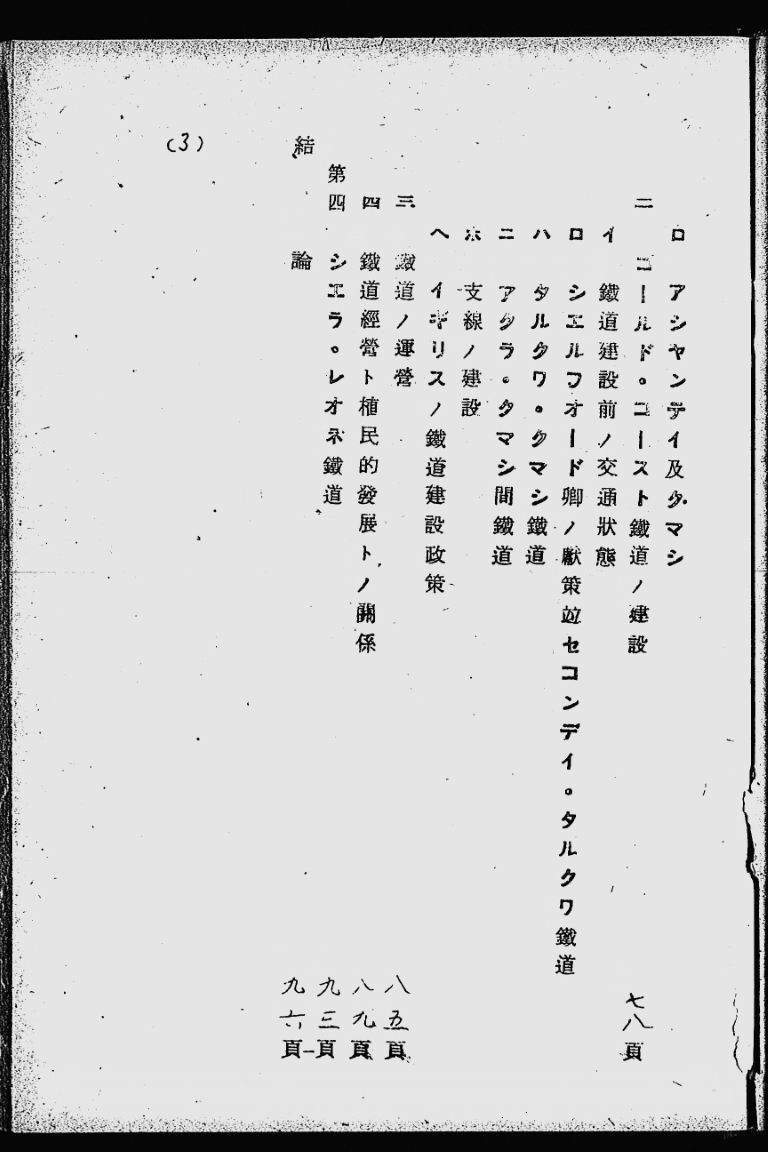 ロ アシヤンテイ及クマシ
二 ゴールド。コースト鐵道ノ建設 七八頁
イ 鐵道建設前ノ交通狀態
ロ シエルフオード卿ノ獻策竝セコンデイ。タルクワ鐵道
ハ タルクワ。クマシ鐵道
ニ アクラ。クマシ間鐵道
ホ 支線ノ建設
ヘ イギリスノ鐵道建設政策
三 鐵道ノ運營 八五頁
四 鐵道經營ト植民的發展トノ關係 八九頁
第四 シエラ。レオネ鐵道 九三頁
結 論 九六頁
(3)